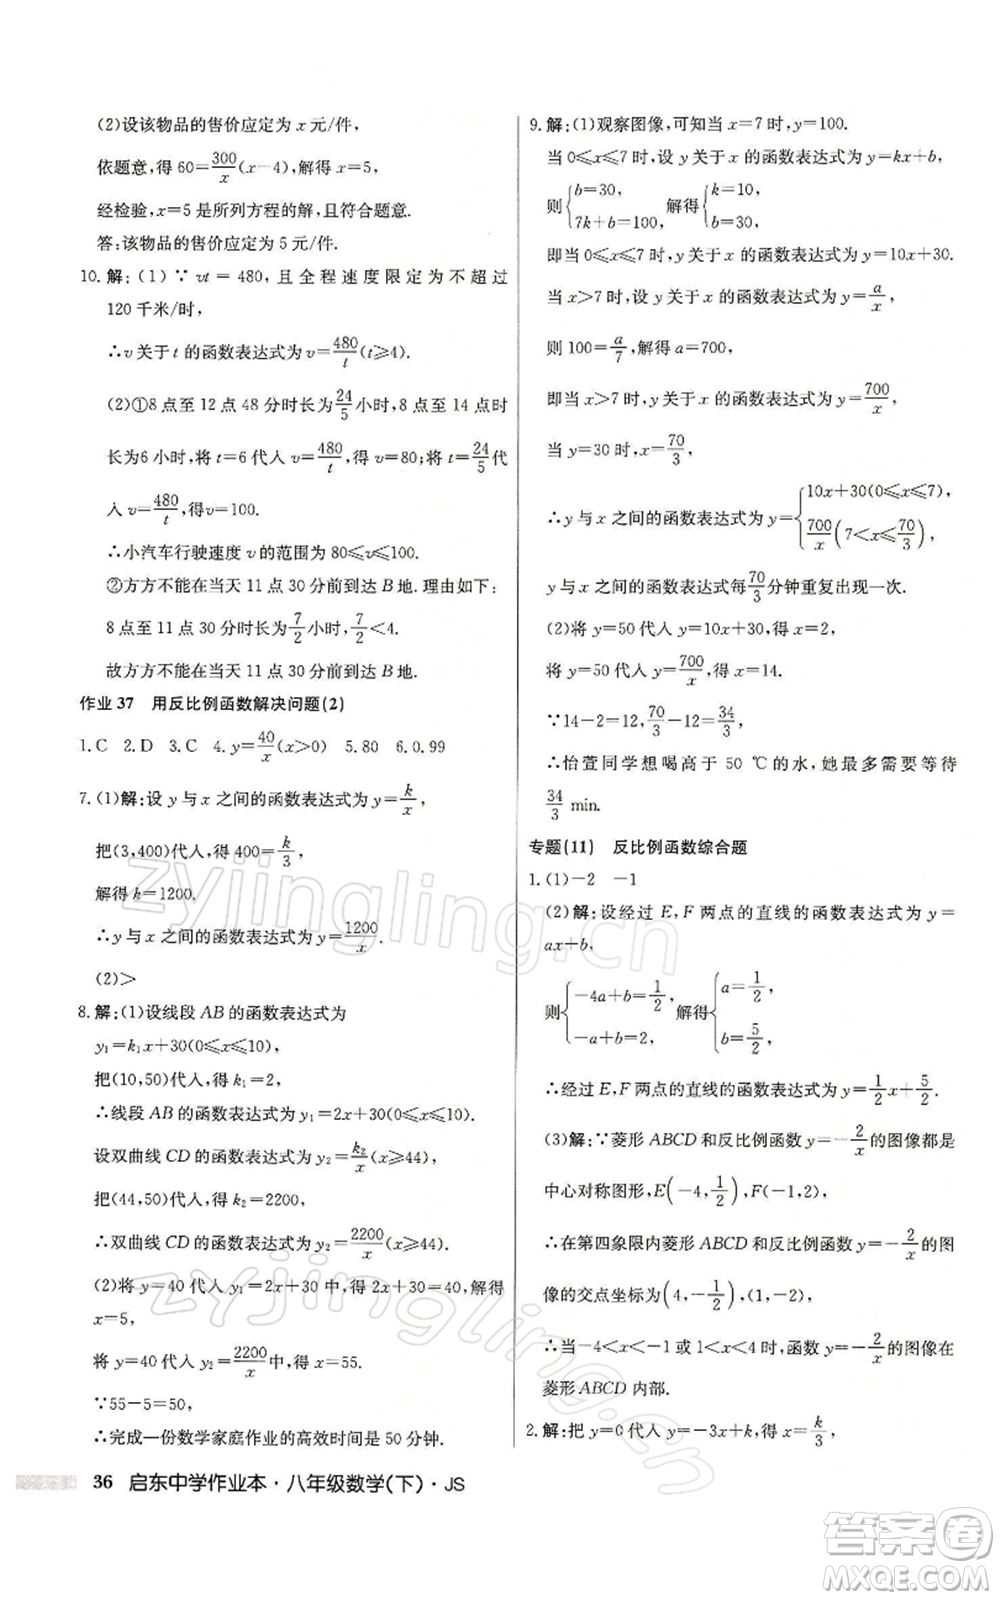 (2)设该物品的售价应定为 x 元/件,
依题意,得 60=300/x(x-4),解得 x=5,
经检验,x=5 是所列方程的解,且符合题意.
答:该物品的售价应定为 5 元/件.
10.解:(1)∵vt=480,且全程速度限定为不超过
120 千米/时,
∴v 关于 t 的函数表达式为 v=480/t(t⩾4).
(2)①8 点至 12 点 48 分时长为24/5小时,8 点至 14 点时
长为6 小时,将 t=6 代入 v=480/t,得 v=80;将 t=24/5代
入 v=480/t,得v=100.
∴小汽车行驶速度 v 的范围为 80⩽v⩽100.
②方方不能在当天 11 点 30 分前到达 B 地.理由如下:
8 点至 11 点 30 分时长为7/2小时,7/2<4.
故方方不能在当天 11 点 30 分前到达 B 地.
作业 37 用反比例函数解决问题(2)
1.C 2.D 3.C 4.y=40/x(x>0) 5.80 6.0.99
7.(1)解:设 y 与 x 之间的函数表达式为 y=k/x,
把(3,400)代入,得 400=k/3,
解得 k=1200.
∴y 与 x 之间的函数表达式为 y=1200/x.
(2)>
8.解:(1)设线段 AB 的函数表达式为
y₁=k₁x+30(0⩽x⩽10),
把(10,50)代入,得 k₁=2,
∴线段 AB 的函数表达式为 y₁=2x+30(0⩽x⩽10).
设双曲线 CD 的函数表达式为 y₂=k₂/x(x⩾44),
把(44,50)代入,得 k₂=2200,
∴双曲线 CD 的函数表达式为 y₂=2200/x(x⩾44).
(2)将 y=40 代入 y₁=2x+30 中,得 2x+30=40,解得
x=5,
将 y=40 代入 y₂=2200/x中,得 x=55.
∵55-5=50,
∴完成一份数学家庭作业的高效时间是 50 分钟.
9.解:(1)观察图像,可知当 x=7 时,y=100.
当 0⩽x⩽7 时,设 y 关于 x 的函数表达式为 y=kx+b,
则{b=30, 7k+b=100,解得{k=10, b=30.
即当 0⩽x⩽7 时,y 关于 x 的函数表达式为 y=10x+30.
当 x>7 时,设 y 关于 x 的函数表达式为 y=a/x,
则 100=a/7,解得 a=700,
即当 x>7 时,y 关于 x 的函数表达式为 y=700/x,
当 y=30 时,x=70/3,
∴y 与 x 之间的函数表达式为 y={10x+30(0⩽x⩽7), 700/x(7<x⩽70/3),
y 与 x 之间的函数表达式每70/3分钟重复出现一次.
(2)将 y=50 代入 y=10x+30,得 x=2,
将 y=50 代入 y=700/x,得 x=14.
∵14-2=12,70/3-12=34/3,
∴怡萱同学想喝高于 50 ℃的水,她最多需要等待
34/3 min.
专题(11) 反比例函数综合题
1.(1)-2 -1
(2)解:设经过 E,F 两点的直线的函数表达式为 y=
ax+b,
则{-4a+b=1/2, -a+b=2,解得{a=1/2, b=5/2,
∴经过 E,F 两点的直线的函数表达式为 y=1/2x+5/2.
(3)解:∵菱形 ABCD 和反比例函数 y=-2/x的图像都是
中心对称图形,E(-4,1/2),F(-1,2),
∴在第四象限内菱形 ABCD 和反比例函数 y=-2/x的图
像的交点坐标为(4,-1/2),(1,-2),
∴当-4<x<-1 或 1<x<4 时,反比例函数 y=-2/x的图像在
菱形 ABCD 内部.
2.解:把 y=0 代入 y=-3x+k,得 x=k/3,
36 启东中学作业本·八年级数学(下)·JS
zyjingling.cn
zyjingling.cn
答案圈
MXQE.COM